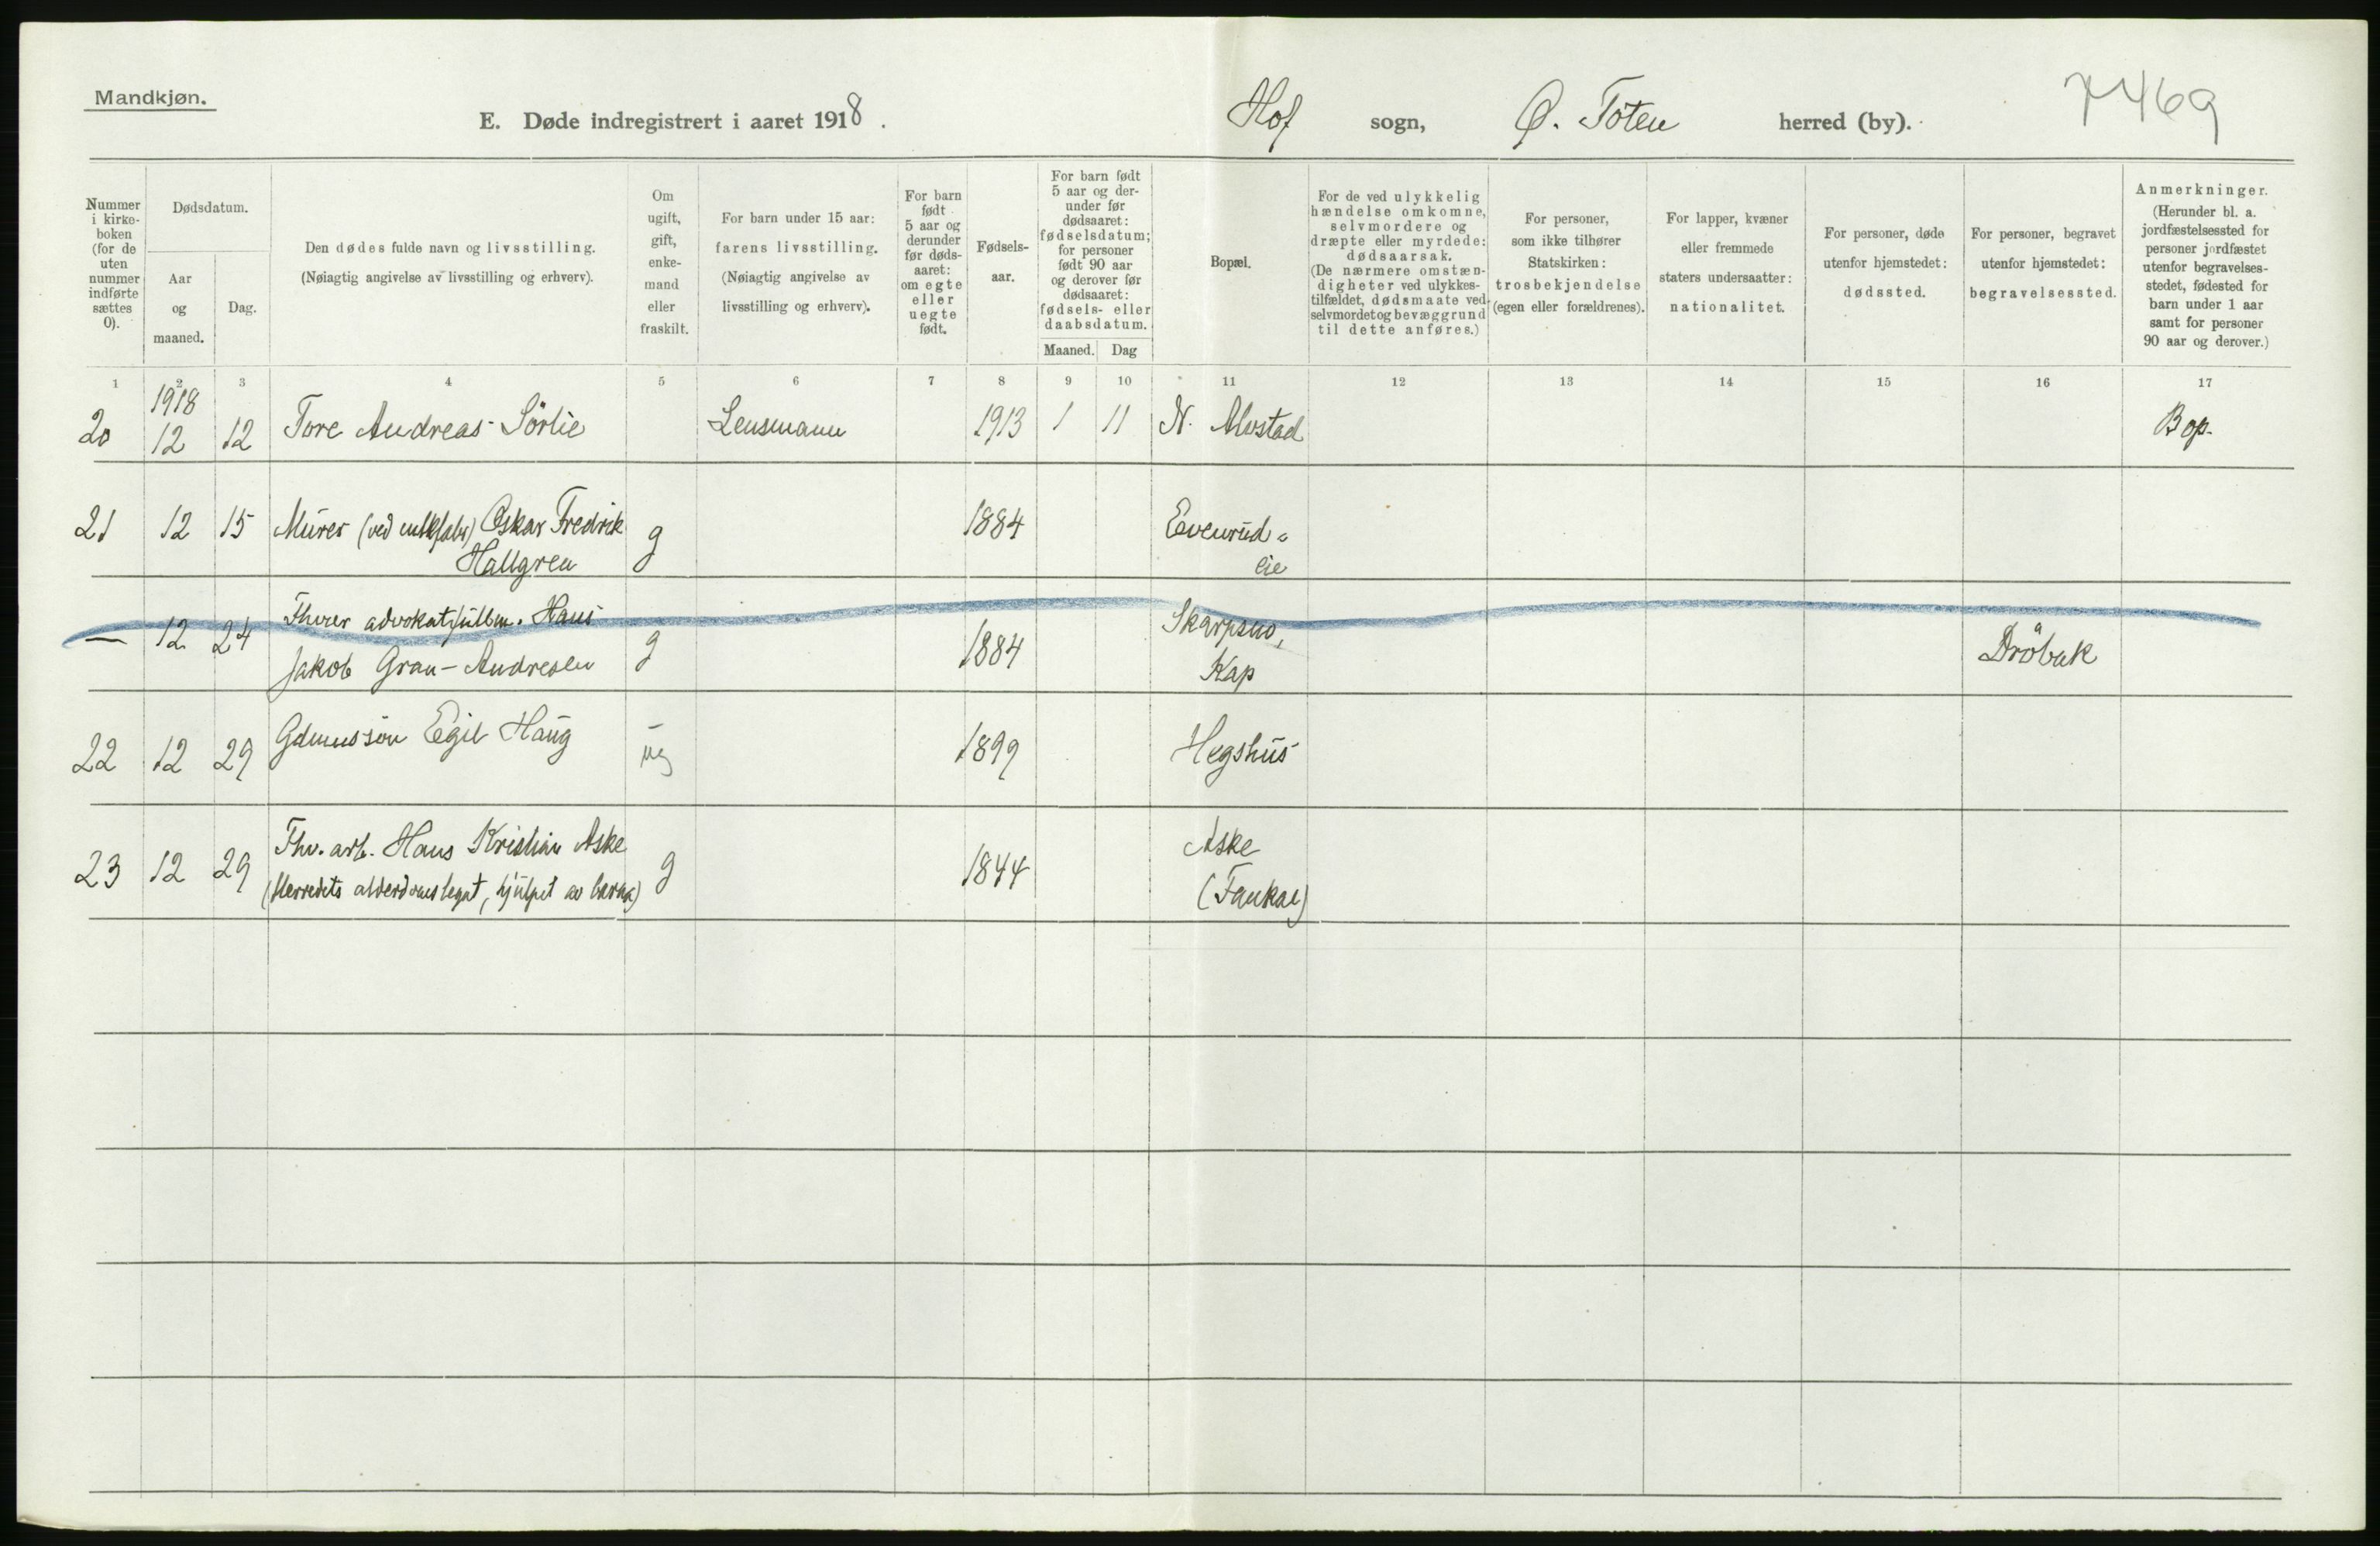 Mandkjøn.
E. Døde indregistrert i aaret 1918.
Hof sogn, Ø. Toten herred (by).
7469
Nummer
i kirke-
boken
(for de
uten
nummer
indførte
sættes
0).
Dødsdatum.
Aar
og
maaned.
Dag.
Den dødes fulde navn og livsstilling.
(Nøiagtig angivelse av livsstilling og erhverv).
Om
ugift,
gift,
enke-
mand
eller
fraskilt.
For barn under 15 aar:
farens livsstilling.
(Nøiagtig angivelse av
livsstilling og erhverv).
For barn
født
5 aar og
derunder
før døds-
aaret:
om egte
eller
uegte
født.
Fødsels-
aar.
For barn født
5 aar og der-
under før
dødsaaret:
fødselsdatum;
for personer
født 90 aar
og derover før
dødsaaret:
fødsels- eller
daabsdatum.
Maaned. Dag
Bopæl.
For de ved ulykkelig
hændelse omkomne,
selvmordere og
dræpte eller myrdede:
dødsaarsak.
(De nærmere omstæn-
digheter ved ulykkes-
tilfældet, dødsmaate ved
selvmordet og bevæggrund
til dette anføres.)
For personer,
som ikke tilhører
Statskirken:
trosbekjendelse
(egen eller forældrenes).
For lapper, kvæner
eller fremmede
staters undersaatter:
nationalitet.
For personer, døde
utenfor hjemstedet:
dødssted.
For personer, begravet
utenfor hjemstedet:
begravelsessted.
Anmerkninger.
(Herunder bl. a.
jordfæstelsessted for
personer jordfæstet
utenfor begravelses-
stedet, fødested for
barn under 1 aar
samt for personer
90 aar og derover.)
1 2 3 4 5 6 7 8 9 10 11 12 13 14 15 16 17
1918
20 12 12 Tore Andreas Sörlie Lensmann 1913 1 11 N. Alvstad Bop.
21 12 15 Murer (ved Oskar Fredrik g 1884 Evenrud-
Hallgren eie
— 12 24 advokatfullm. Hans Skarpsno,
Jakob Gran-Andresen g 1884 Kap Dröbak
22 12 29 Gdmnssön Egil Haug - 1899 Hegshus
ug
23 12 29 Fhv. arb. Hans Kristian Aske g 1844 Aske
(Herredets alderdomslegat, hjulpet av barna) (Faukal)